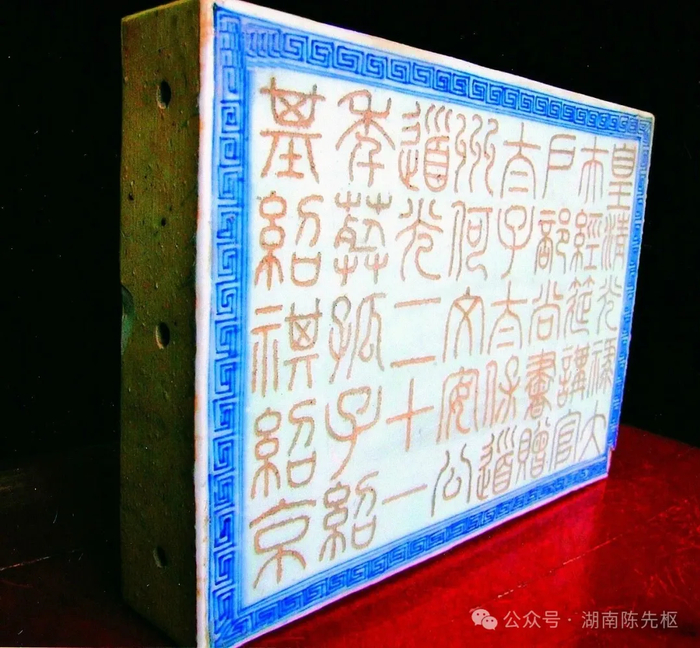 皇清光祿大
夫經筵講官
戶部尚書贈
太子太保道
州何文安公
道光二十一
年葬孤子紹
基紹祺紹京
公众号 · 湖南陈先枢